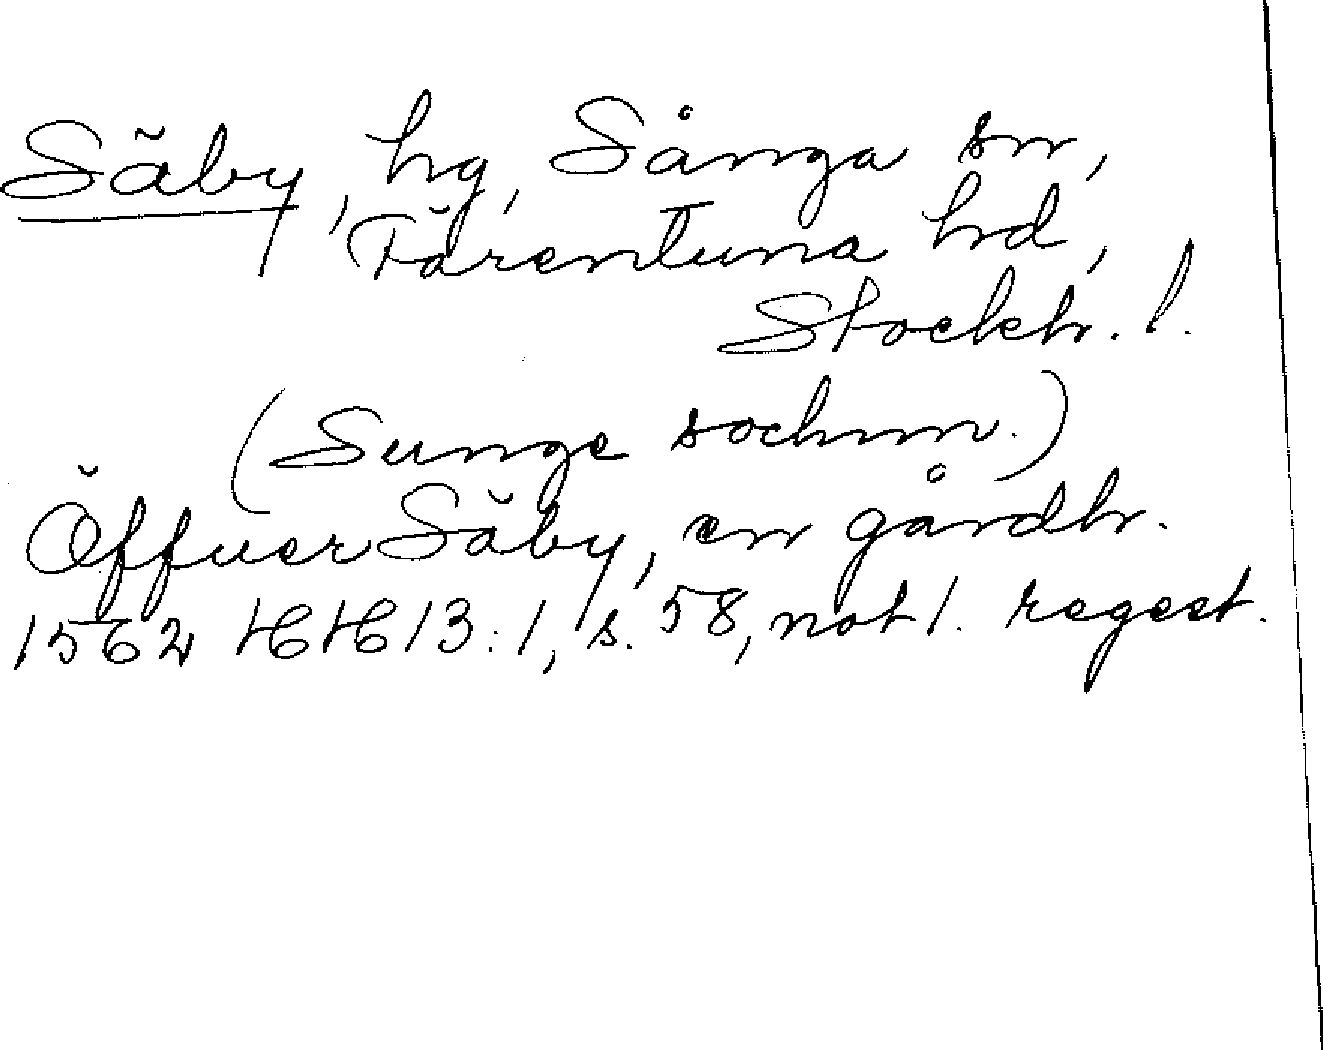 Säby, hg, Sånga sn,
Färentuna hd,
Stockh. l.
(Sunge sochnn.)
Öffuer Säby, en gårdh.
1562 HH 13:1, s. 58, not 1. regest.